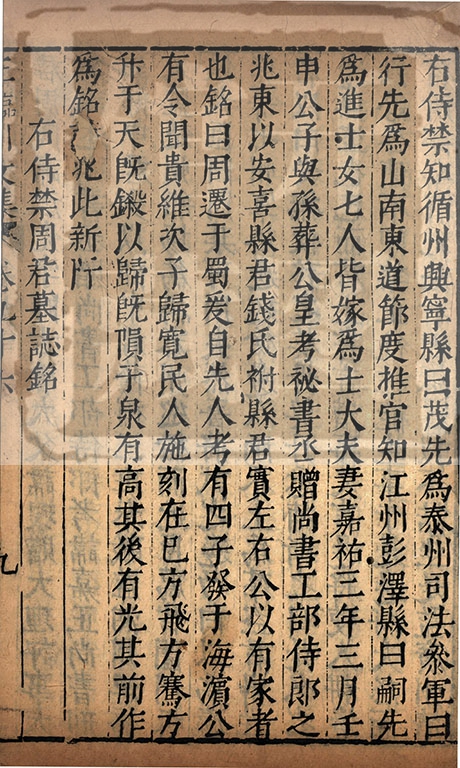 右侍禁知循州興寧縣曰茂先為泰州司法叅軍曰
行先為山南東道節度推官知江州彭澤縣曰嗣先
為進士女七人皆嫁為士大夫妻嘉祐三年三月壬
申公子與孫葬公皇考祕書丞贈尚書工部侍郎之
兆東以安喜縣君錢氏祔縣君實左右公以有家者
也銘曰周遷于蜀爰自先人考有四子發于海濱公
有令聞貴維次子歸寛民人施刻在巳方飛方騫方
升于天旣鎩以歸旣隕于泉有高其後有光其前作
為銘兆此新阡
右侍禁周君墓誌銘
王臨川文集 卷九十六
九